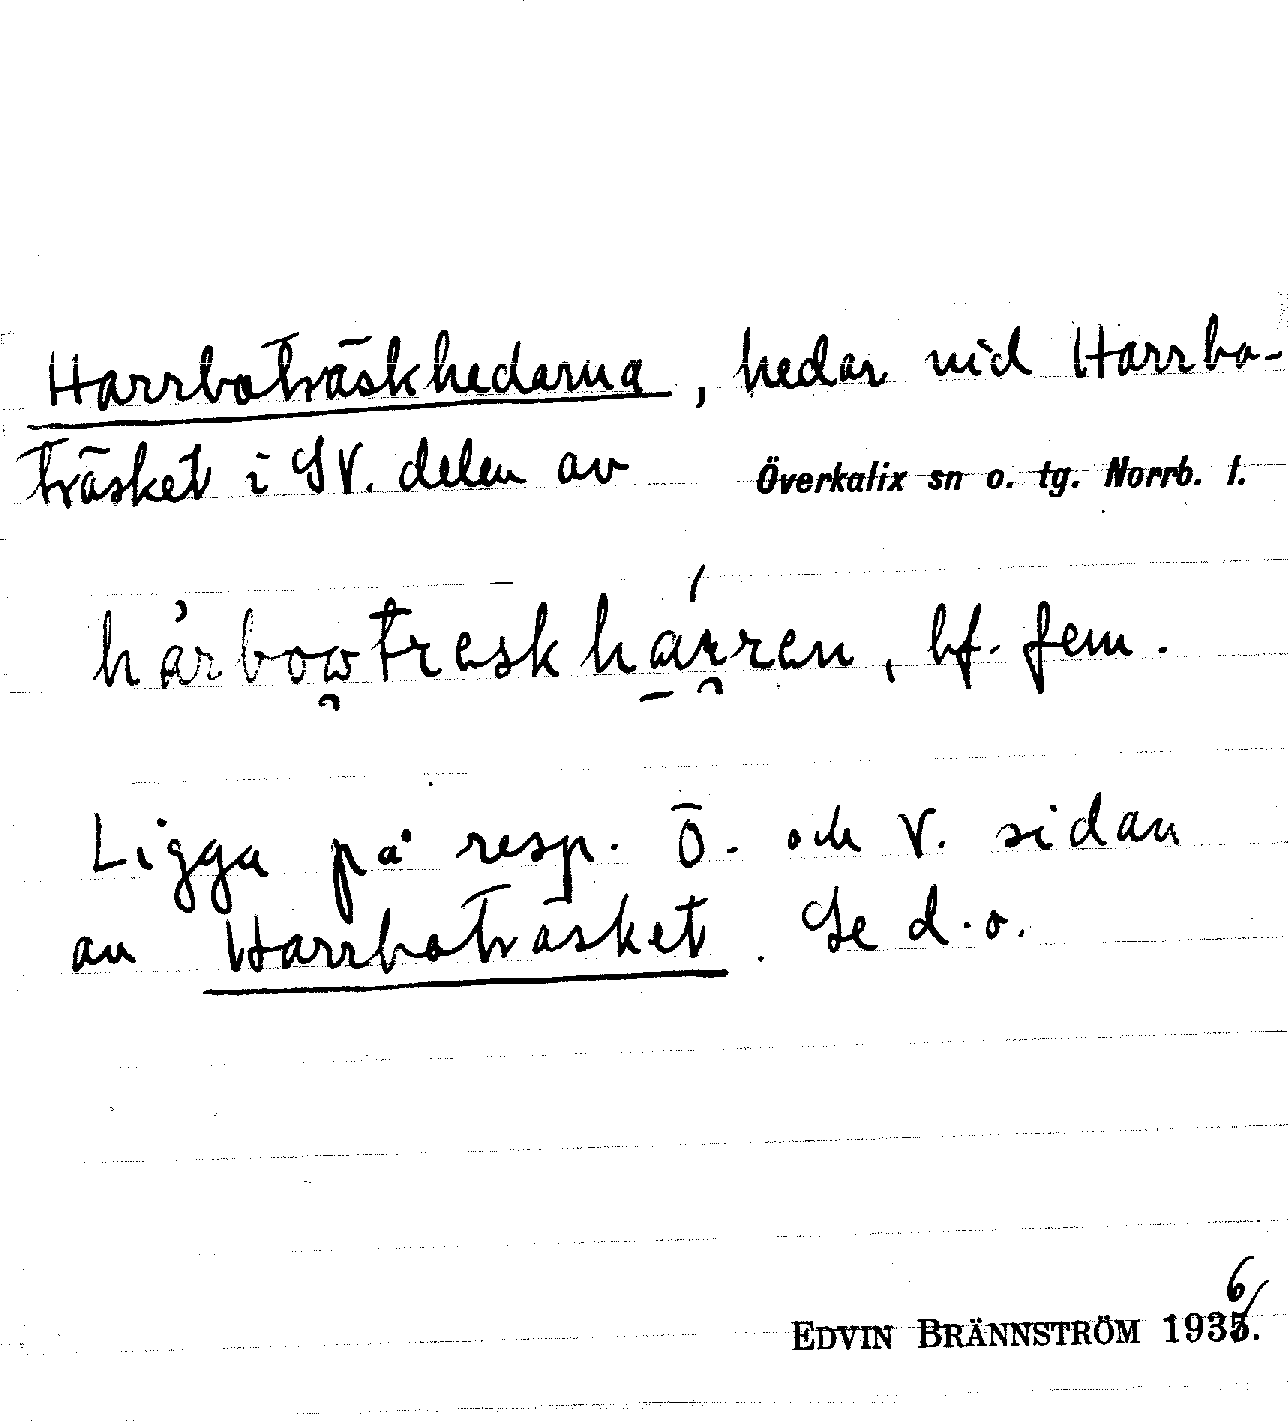 Harrboträskhedarna, hedar vid Harrbo-
träsket i SV. delen av Överkalix sn o. tg. Norrb. l.
hárbowtreskhárren, bf. fem.
Ligga på resp. Ö. och V. sidan
av Harrboträsket. Se d.o.
EDVIN BRÄNNSTRÖM 1936.